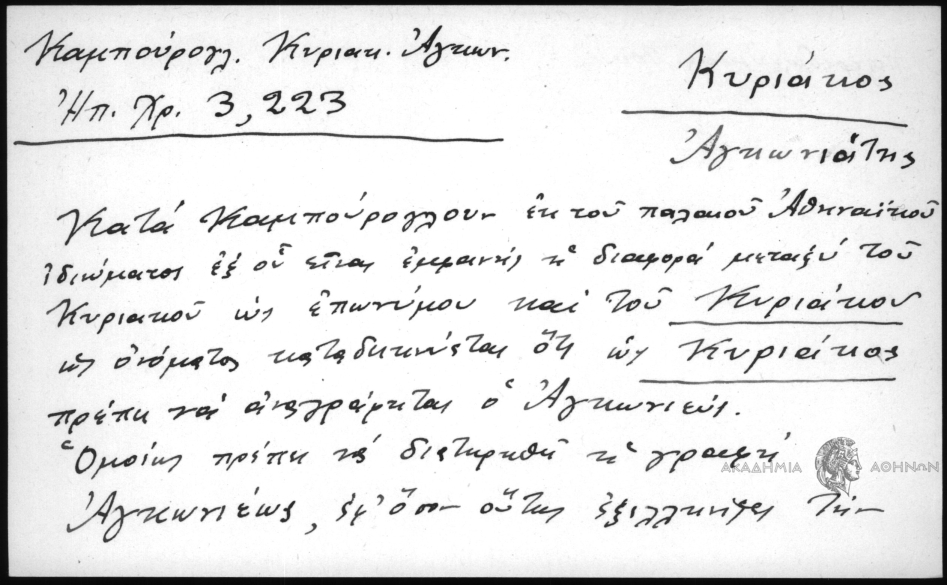 Καμπούρογλ. Κυριακ. Ἀγκων.
Ἠπ. Χρ. 3, 223
Κυριάκος
Ἀγκωνιάτης
Κατά Καμπούρογλουν ἐκ τοῦ παλαιοῦ Ἀθηναϊκοῦ
ἰδιώματος ἐξ οὗ εἶναι ἐμφανής ἡ διαφορά μεταξύ τοῦ
Κυριακοῦ ὡς ἐπωνύμου καί τοῦ Κυριάκου
ὡς ὀνόματος καταδεικνύεται ὅτι ὡς Κυριάκος
πρέπει νά ἀναγράφεται ὁ Ἀγκωνιεύς.
Ὁμοίως πρέπει νά διατηρηθῇ ἡ γραφή
Ἀγκωνιέως, ἐφ' ὅσον οὕτως ἐξελληνίζει τήν
ΑΚΑΔΗΜΙΑ ΑΘΗΝΩΝ